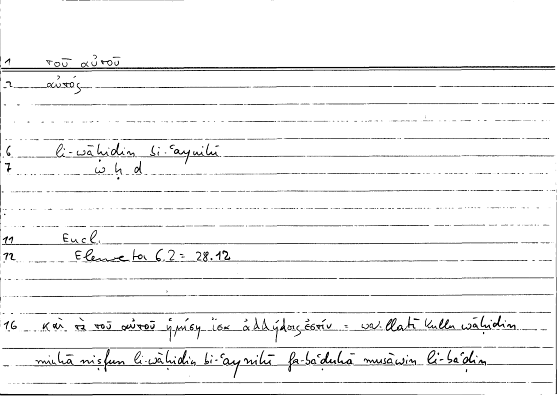 1 τοῦ αὐτοῦ
2 αὐτός
6 li-wāḥidin bi-ʿaynihī
7 w ḥ d
11 Eucl.
12 Elementa 6.2 = 28.12
16 καὶ τὰ τοῦ αὐτοῦ ἡμίση ἴσα ἀλλήλοις ἐστίν = wa-llatī kullu wāḥidin
minhā niṣfun li-wāḥidin bi-ʿaynihī fa-baʿḍuhā musāwin li-baʿḍin